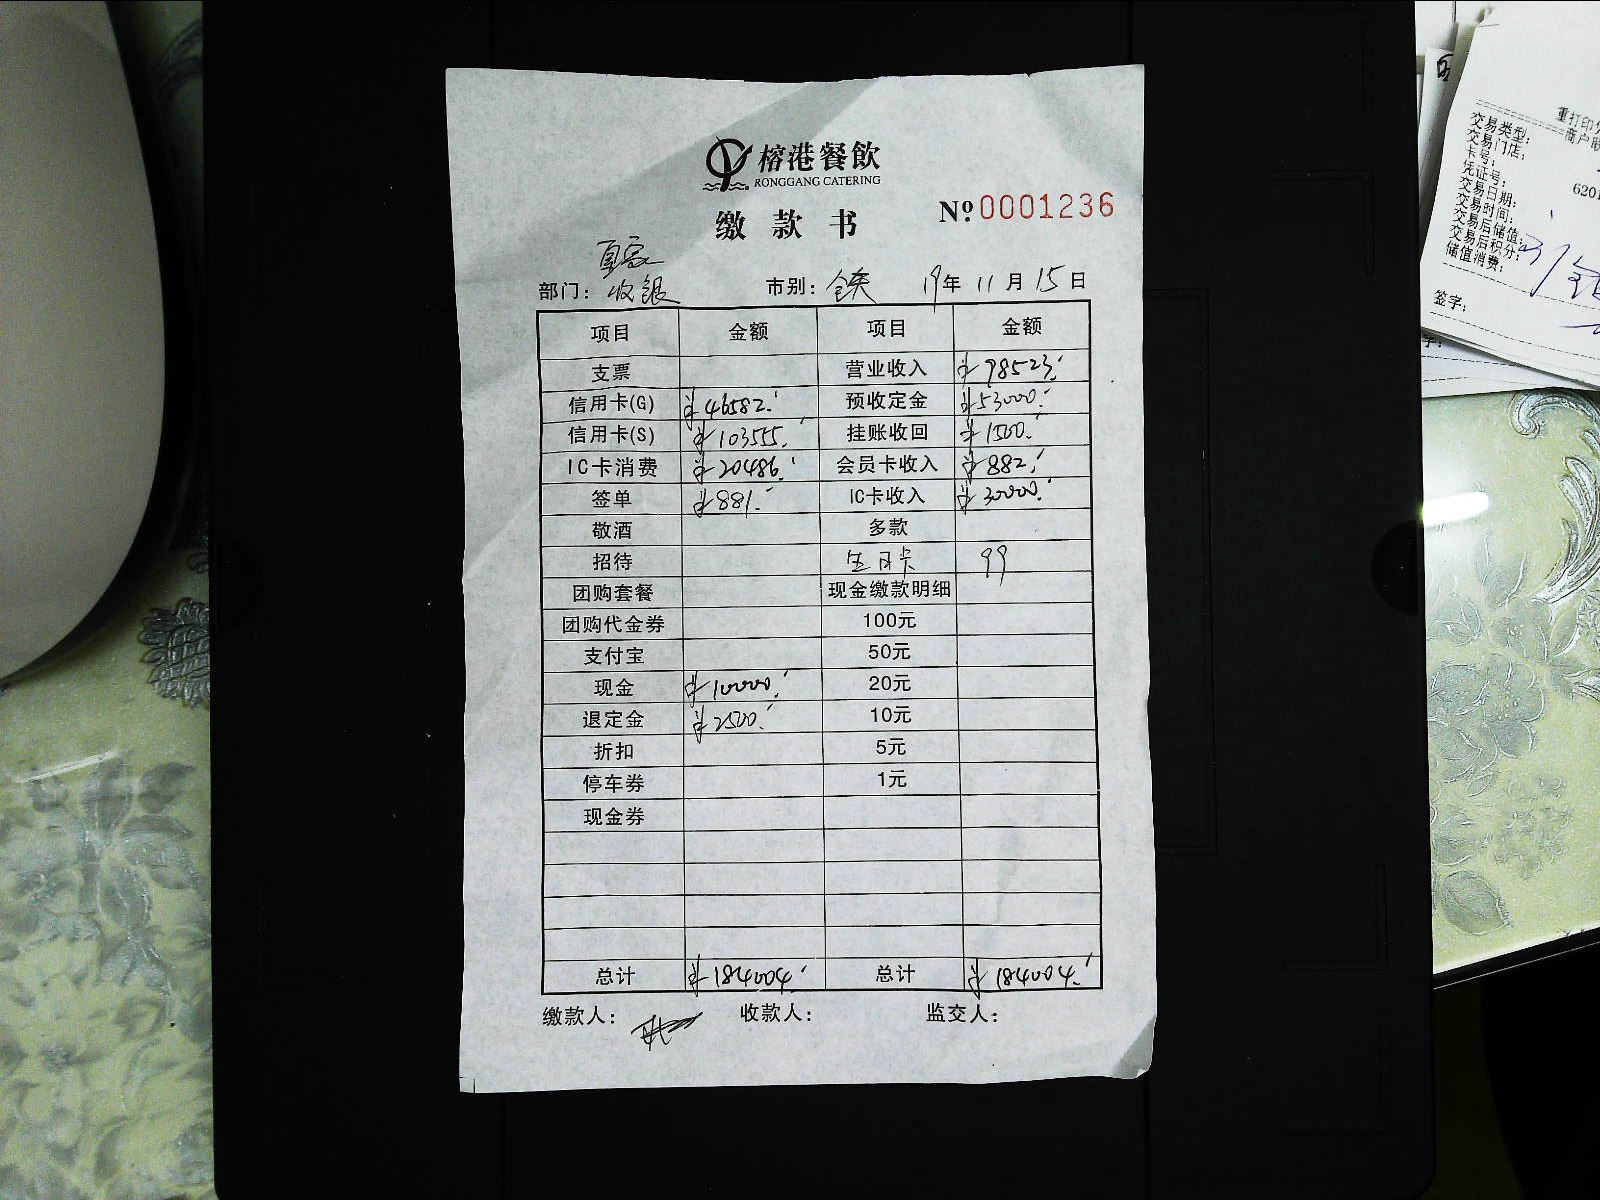 榕港餐飲
RONGGANG CATERING
缴款书 Nº 0001236
部门: 收银 市别: 全天 19年 11月 15日
项目 金额 项目 金额
支票 营业收入 ¥98523.-
信用卡(G) ¥46582.- 预收定金 ¥53000.-
信用卡(S) ¥103555.- 挂账收回 ¥1500.-
IC卡消费 ¥20486.- 会员卡收入 ¥882.-
签单 ¥881.- IC卡收入 ¥30000.-
敬酒 多款
招待 生日卡 99
团购套餐 现金缴款明细
团购代金券 100元
支付宝 50元
现金 ¥10000.- 20元
退定金 ¥2500.- 10元
折扣 5元
停车券 1元
现金券
总计 ¥184004.- 总计 ¥184004.-
缴款人: 收款人: 监交人:
重打印
商户联
交易类型:
交易门店:
卡号:
凭证号: 6201
交易日期:
交易时间:
交易后储值:
交易后积分:
储值消费:
签字:
字: